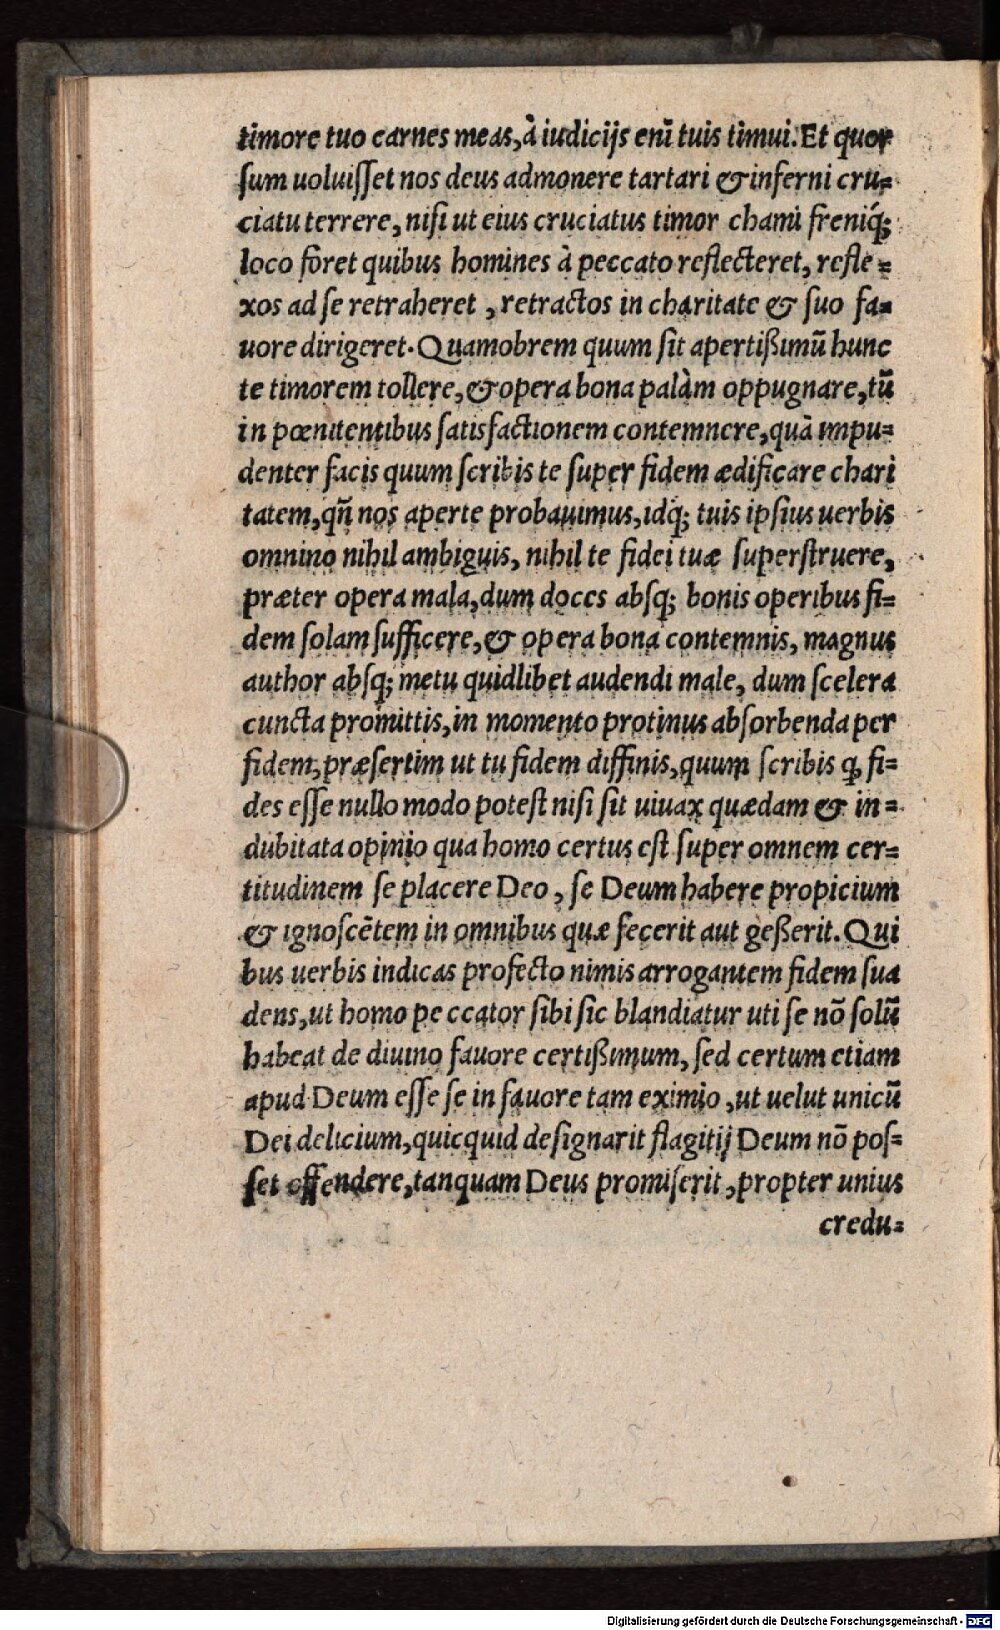 timore tuo carnes meas, à iudicijs enī tuis timui. Et quor
sum uoluisset nos deus admonere tartari & inferni cru=
ciatu terrere, nisi ut eius cruciatus timor chami freniq́;
loco foret quibus homines à peccato reflecteret, refle=
xos ad se retraheret, retractos in charitate & suo fa=
uore dirigeret. Quamobrem quum sit apertißimū hunc
te timorem tollere, & opera bona palàm oppugnare, tū
in pœnitentibus satisfactionem contemnere, quà impu=
denter facis quum scribis te super fidem ædificare chari
tatem, qñ nos aperte probauimus, idq; tuis ipsius uerbis
omnino nihil ambiguis, nihil te fidei tuæ superstruere,
præter opera mala, dum doces absq; bonis operibus fi=
dem solam sufficere, & opera bona contemnis, magnus
author absq; metu quidlibet audendi male, dum scelera
cuncta promittis, in momento protinus absorbenda per
fidem, præsertim ut tu fidem diffinis, quum scribis ꝙ fi=
des esse nullo modo potest nisi sit uiuax quædam & in=
dubitata opinio qua homo certus est super omnem cer=
titudinem se placere Deo, se Deum habere propicium
& ignoscētem in omnibus quæ fecerit aut geßerit. Qui
bus uerbis indicas profecto nimis arrogantem fidem sua
dens, ut homo peccator sibi sic blandiatur uti se nō solū
habeat de diuino fauore certißimum, sed certum etiam
apud Deum esse se in fauore tam eximio, ut uelut unicū
Dei delicium, quicquid designarit flagitij Deum nō pos=
set offendere, tanquam Deus promiserit, propter unius
credu=
Digitalisierung gefördert durch die Deutsche Forschungsgemeinschaft - DFG